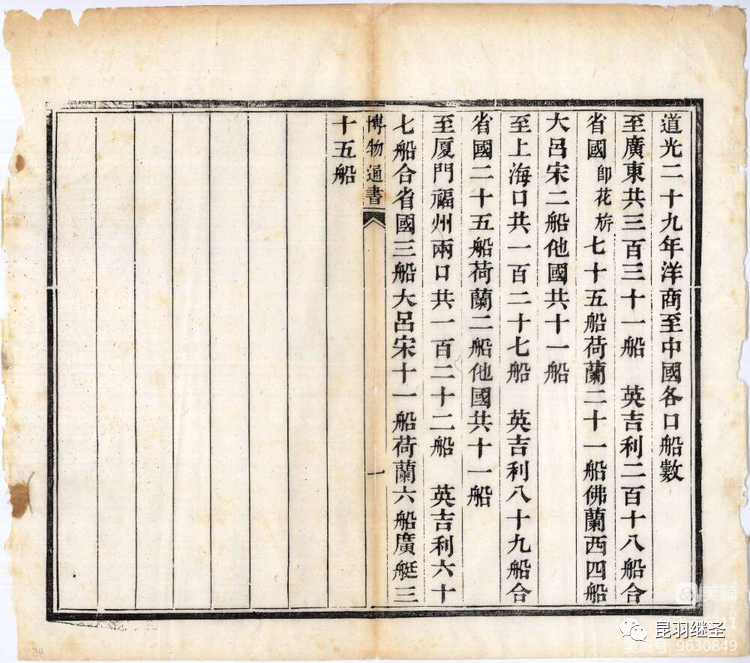 道光二十九年洋商至中國各口船數
至廣東共三百三十一船　英吉利二百十八船合
省國即花旂七十五船荷蘭二十一船佛蘭西四船
大呂宋二船他國共十一船
至上海口共一百二十七船　英吉利八十九船合
省國二十五船荷蘭二船他國共十一船
至厦門福州兩口共一百二十二船　英吉利六十
七船合省國三船大呂宋十一船荷蘭六船廣艇三
博物通書　一
十五船
美篇
昆羽继圣
9630849